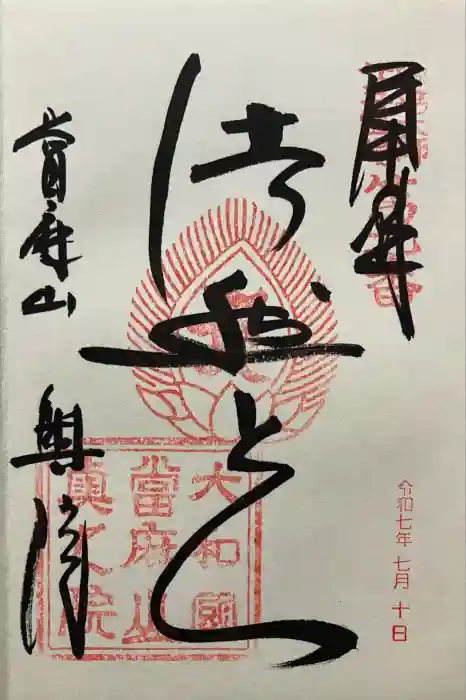 奉拝
令和七年 七月 十日
法然上人
當麻山 奥院
大和國
當麻山
奥之院